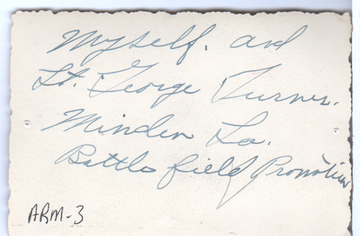 Myself. and
Lt. George Turner.
Minden La.
Battle field Promotion
ARM-3